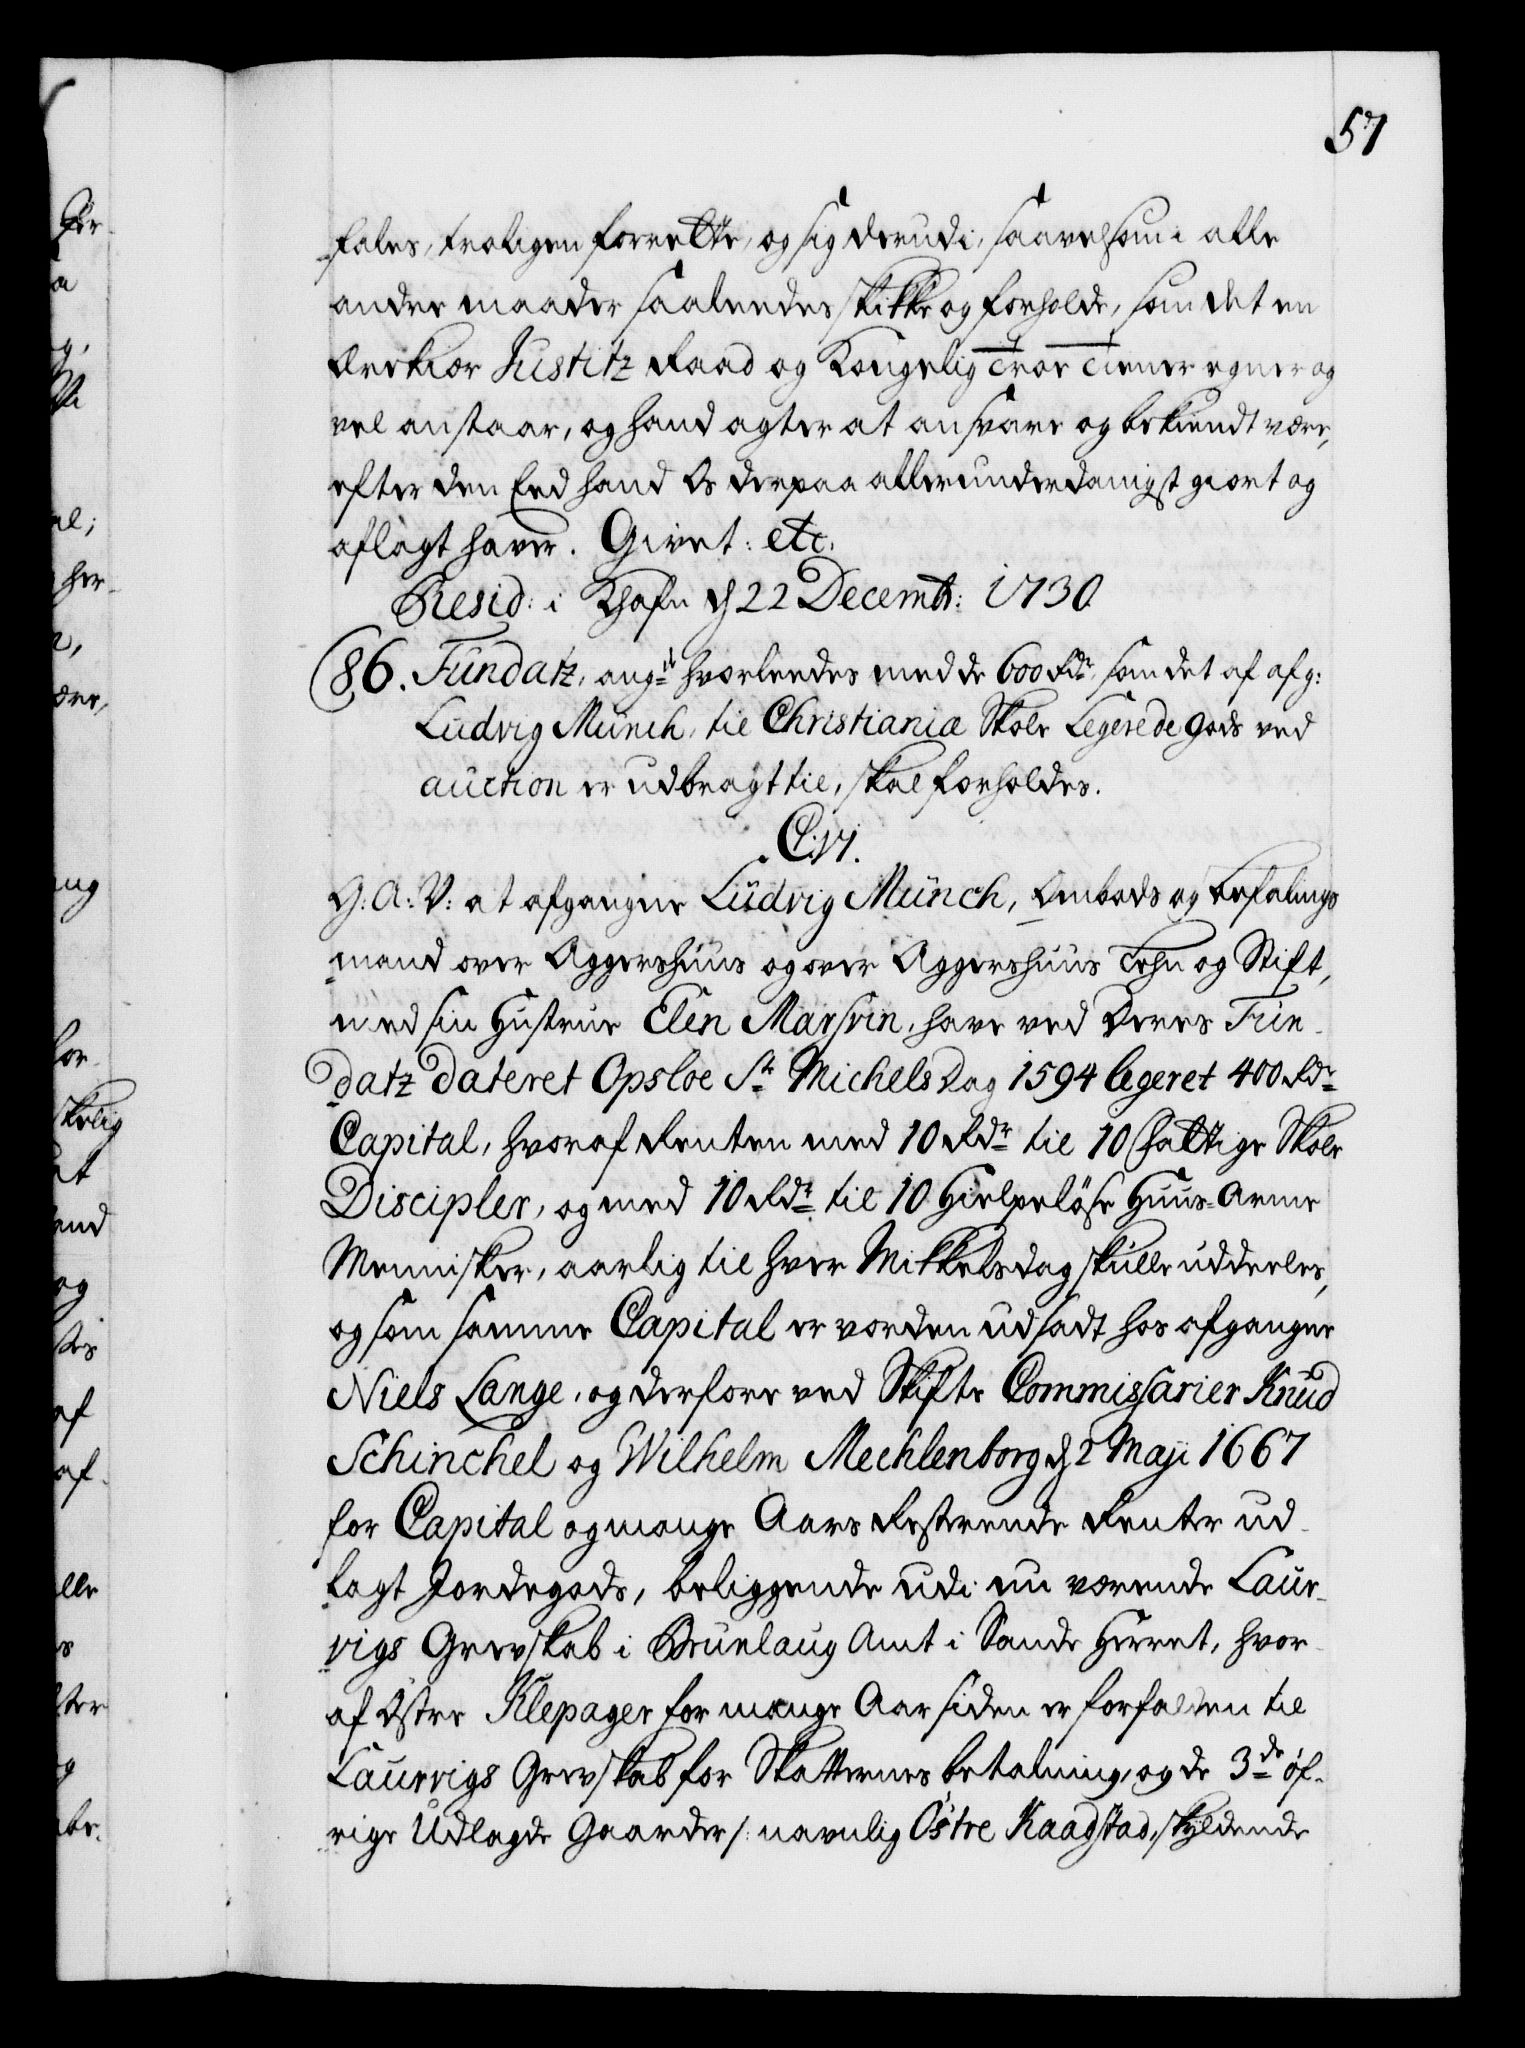 57
fales, troligen forrette, og sig derudi, saavelsom i alle
andre maader saaledes skikke og forholde, som det en
Ærekiær Justitz Raad og Kongelig Troe Tiener egner og
vel anstaar, og hand agter at ansvare og bekiendt være,
efter den Eed hand Os derpaa allerunderdanigst giort og
aflagt haver. Givet: etc.
Resid: i Khafn d 22 Decembr: 1730
86. Fundatz, angde hvorledes med de 600 Rdr, som det af afg:
Ludvig Munch, til Christianiæ Skole Legerede gods ved
auction er udbragt til, skal forholdes.
C: VI.
G: A: V: at afgangne Ludvig Munch, Embeds og befalings
mand over Aggershuus og over Aggershuus Lehn og Stift,
med sin Hustrue Elen Marsvin, have ved Deres Fun-
datz dateret Opsloe St Michels Dag 1594 legeret 400 Rdr
Capital, hvoraf Renten med 10 Rdr til 10 fattige Skole
Discipler, og med 10 Rdr til 10 Hielpeløse Huus-Arme
Mennisker, aarlig til hver Mikkelsdag skulle uddeeles,
og som samme Capital er vorden udsadt hos afgangne
Niels Lange, og derfore ved Skifte Commissarier Knud
Schinchel og Wilhelm Mechlenborg d 2 Maji 1667
for Capital og mange Aars Resterende Renter ud-
lagt Jordegods, beliggende udi nu værende Laur-
vigs Grevskab i Brunlaug Amt i Sande Herret, hvor-
af Østre Klepager for mange Aar siden er forfalden til
Laurvigs Grevskab for Skatternes betalning, og de 3de øf-
rige Udlagde Gaarder /: navnlig Östre Kaadstad, skyldende